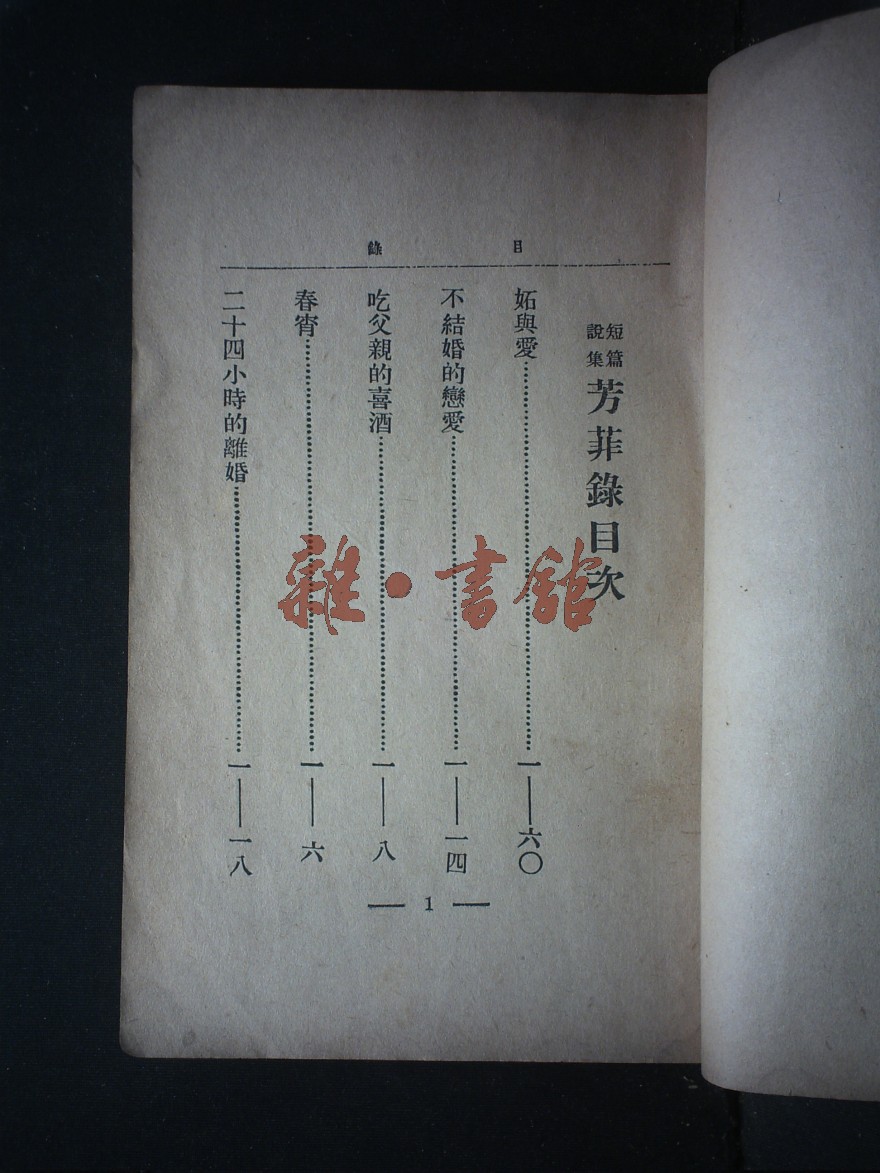 目錄
短篇
說集
芳菲錄目次
妬與愛……一——六〇
不結婚的戀愛……一——一四
吃父親的喜酒……一——八
春宵……一——六
二十四小時的離婚……一——一八
— 1 —
雜·書館